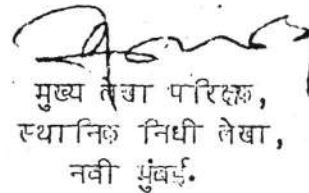 मुख्य लेखा परिक्षक,
स्थानिक निधी लेखा,
नवी मुंबई.